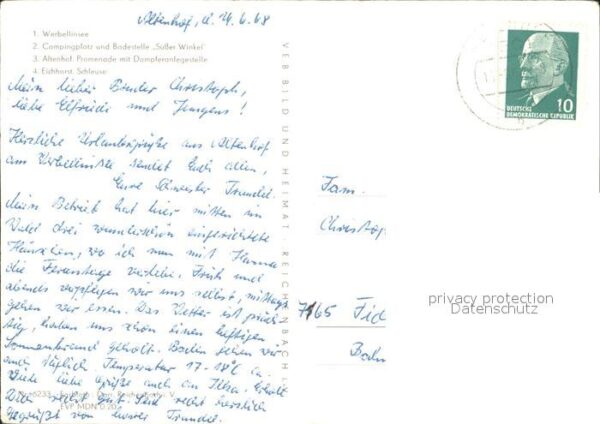 Altenhof, d. 24.6.68
1. Werbellinsee
2. Campingplatz und Badestelle „Süßer Winkel"
3. Altenhof. Promenade mit Dampferanlegestelle
4. Eichhorst. Schleuse
Mein lieber Bruder Christoph,
liebe Elfriede und Jungens!
Herzliche Urlaubsgrüße aus Altenhof
am Werbellinsee sendet Euch allen,
Eure Schwester Traudel.
Mein Betrieb hat hier mitten im
Wald drei wunderschön eingerichtete
Häuschen, wo ich nun mit Hanna
die Ferientage verlebe. Früh und
abends verpflegen wir uns selbst, mittags
gehen wir essen. Das Wetter ist präch-
tig, haben uns schon einen heftigen
Sonnenbrand geholt. Baden gehen wir
auch täglich. Temperatur 17-18°C ca.
Viele liebe Grüße auch an Ilsa. Erholt
Euch recht gut. Seid recht herzlich
gegrüßt von Eurer Traudel.
EVP MDN 0.20
VEB BILD UND HEIMAT · REICHENBACH I.
DEUTSCHE
DEMOKRATISCHE REPUBLIK
10
Fam.
Christop
7465 Fid
Bahn
privacy protection
Datenschutz